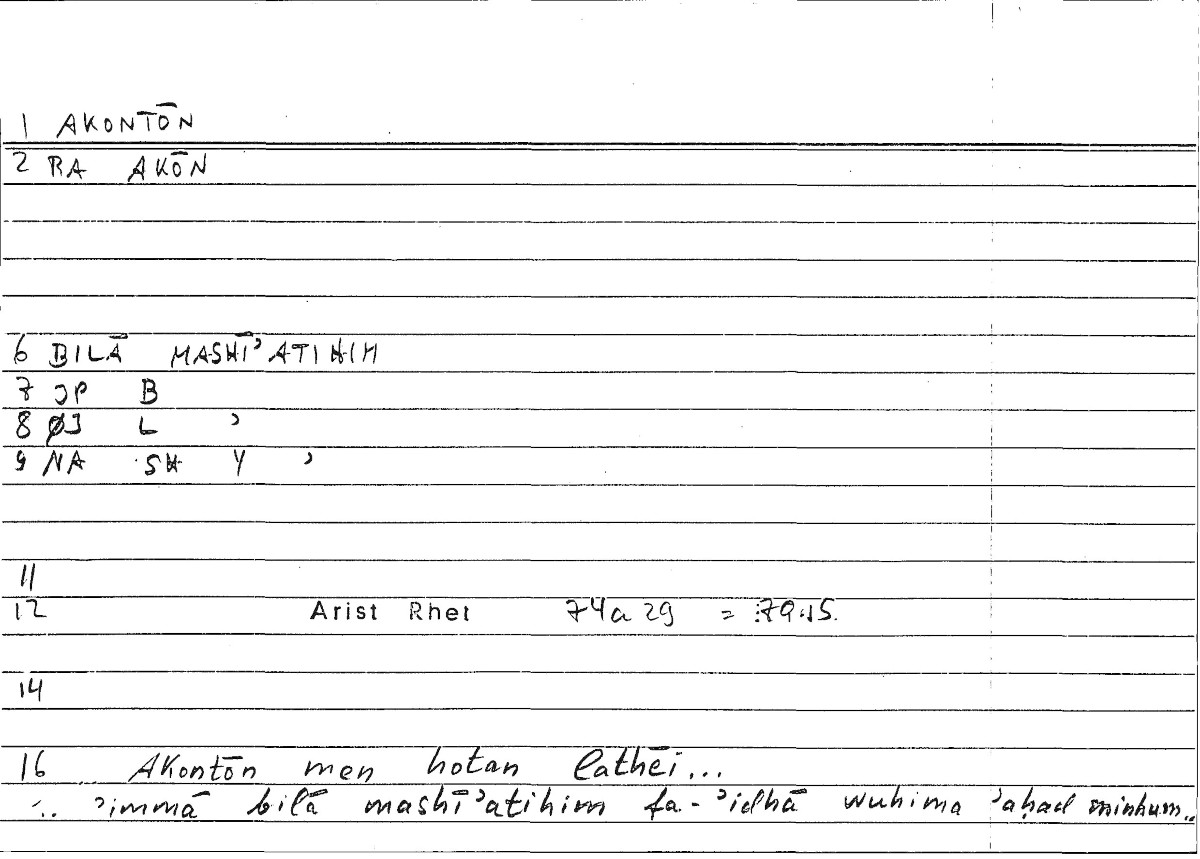 1 AKONTŌN
2 RA AKŌN
6 BILĀ MASHĪʾATIHIM
7 JP B
8 ØJ L ʾ
9 NA SH Y ʾ
11
12 Arist Rhet 74a 29 = 79.15.
14
16 Akontōn men hotan lathēi...
ʾimmā bilā mashīʾatihim fa-ʾidhā wuhima ʾaḥad minhum..